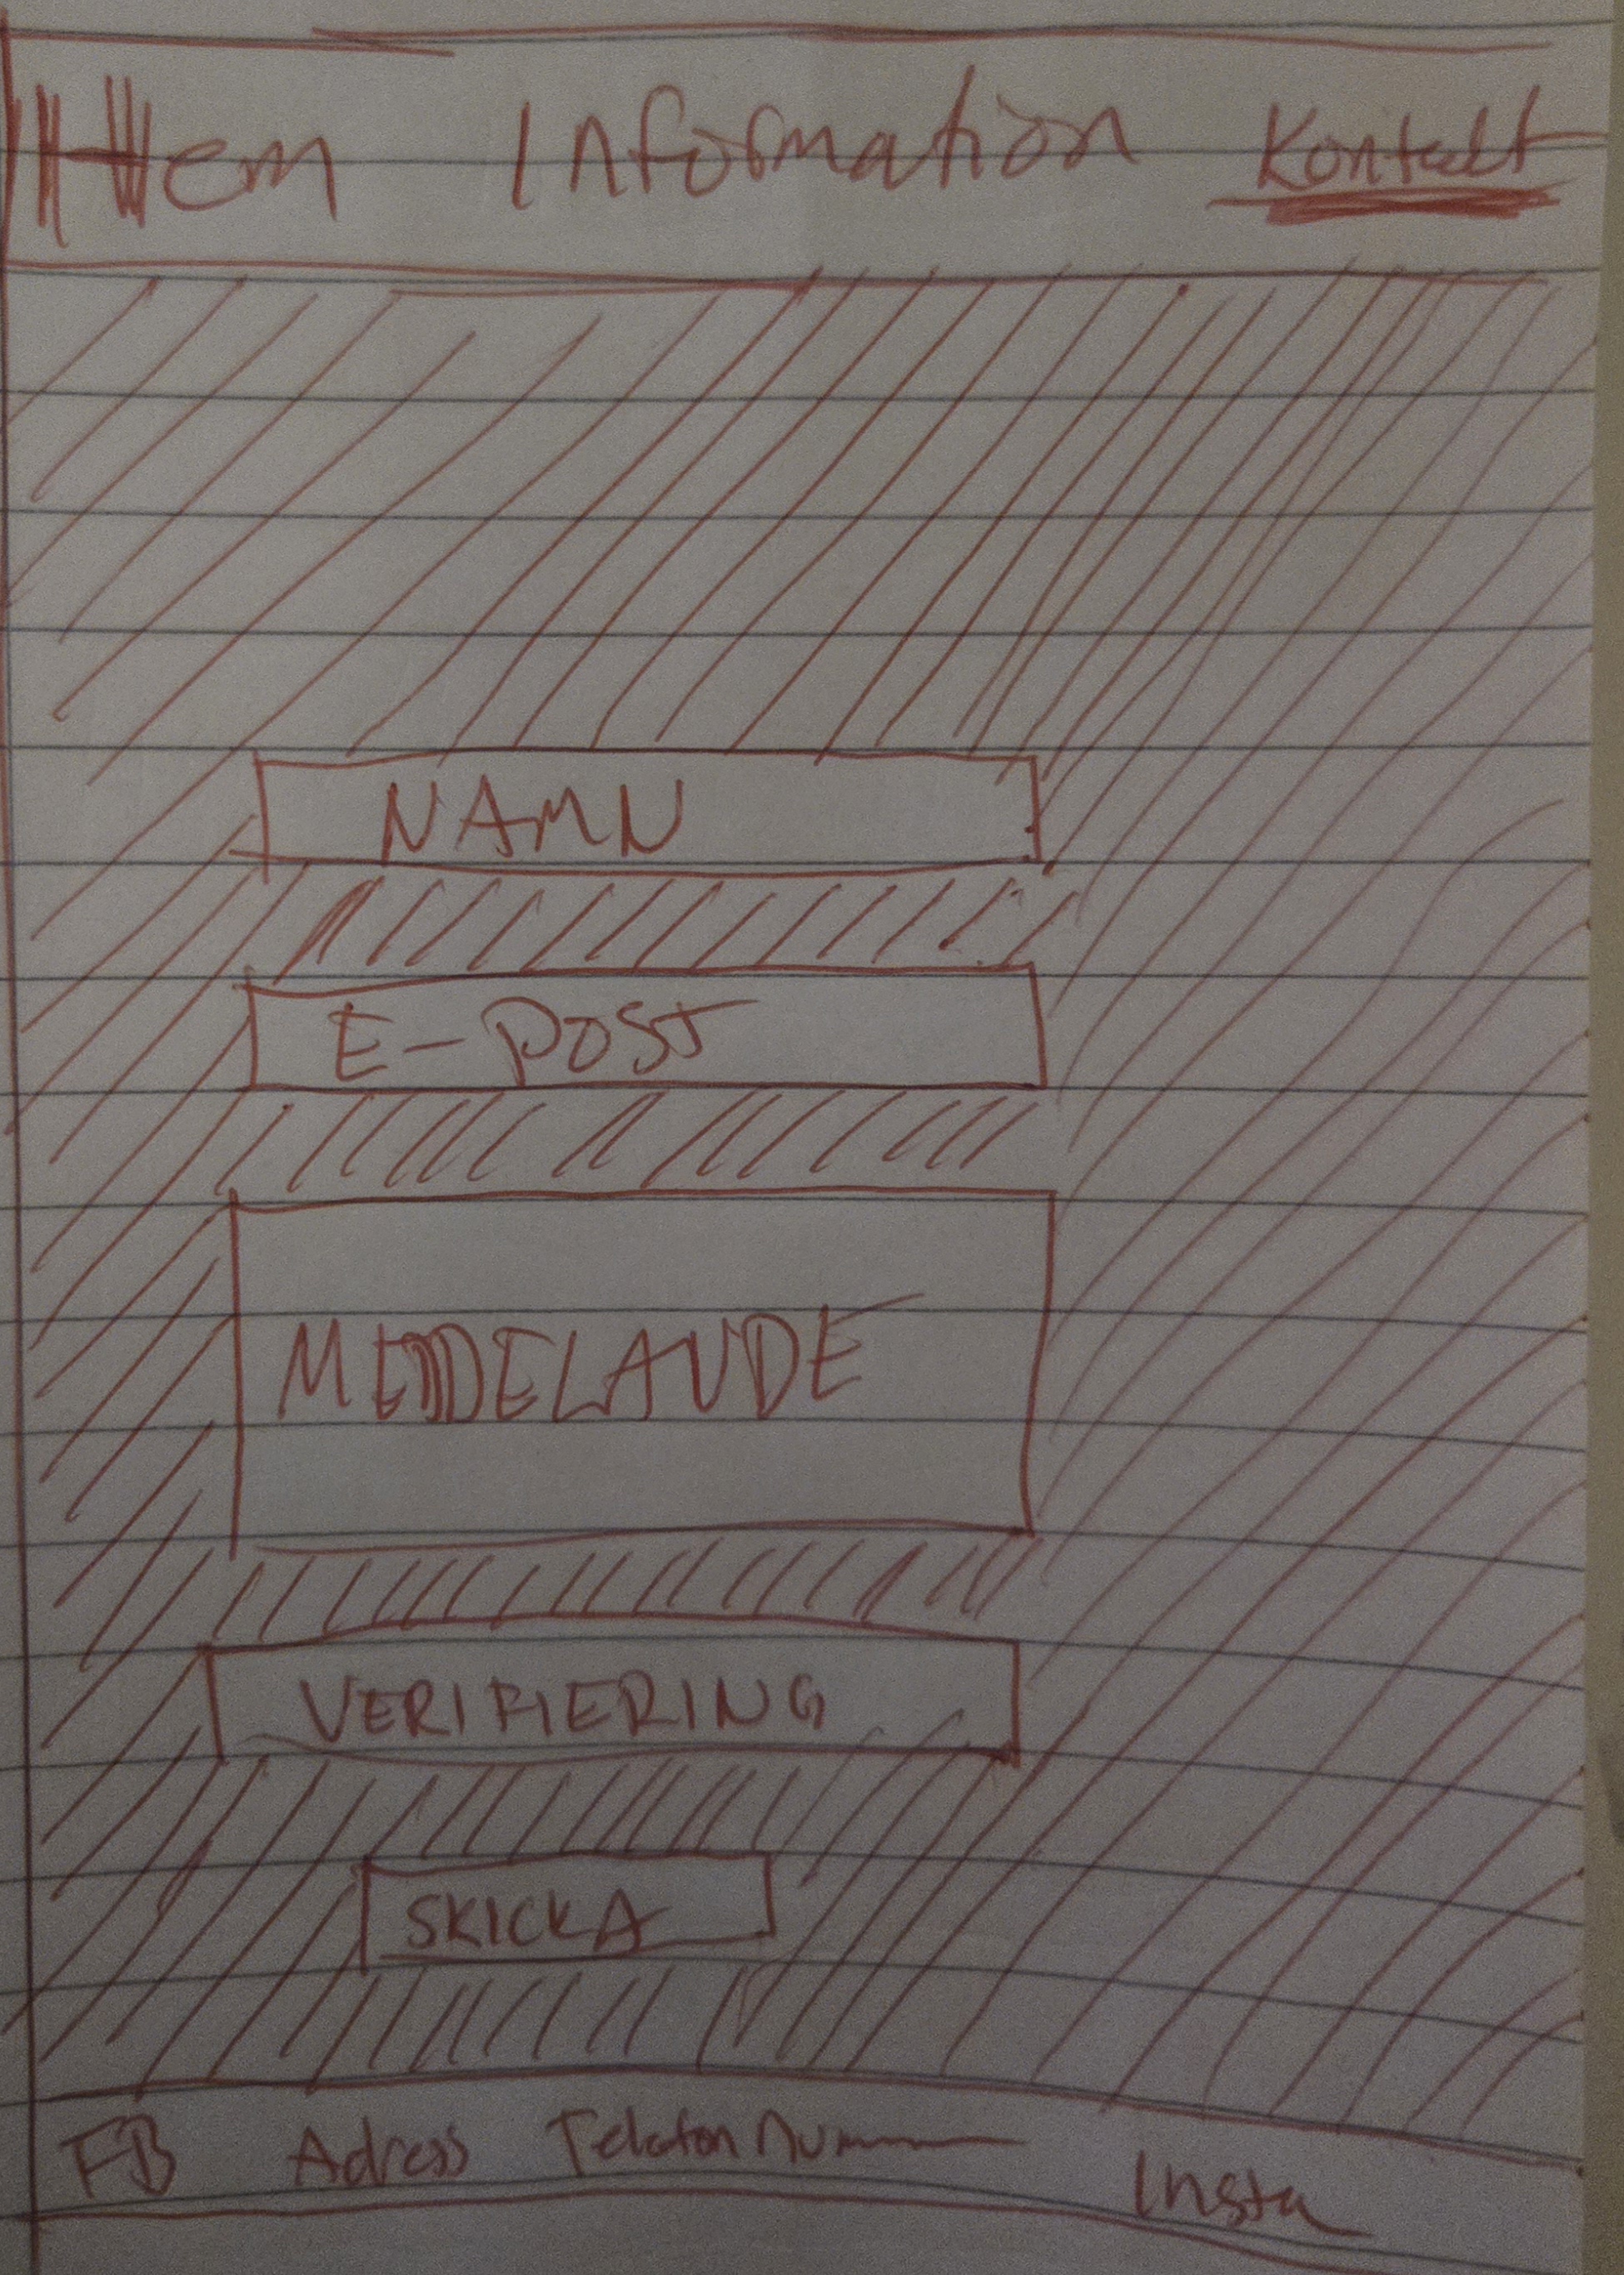 Hem Information Kontakt
NAMN
E-POST
MEDDELANDE
VERIFIERING
SKICKA
FB Adress Telefon Insta